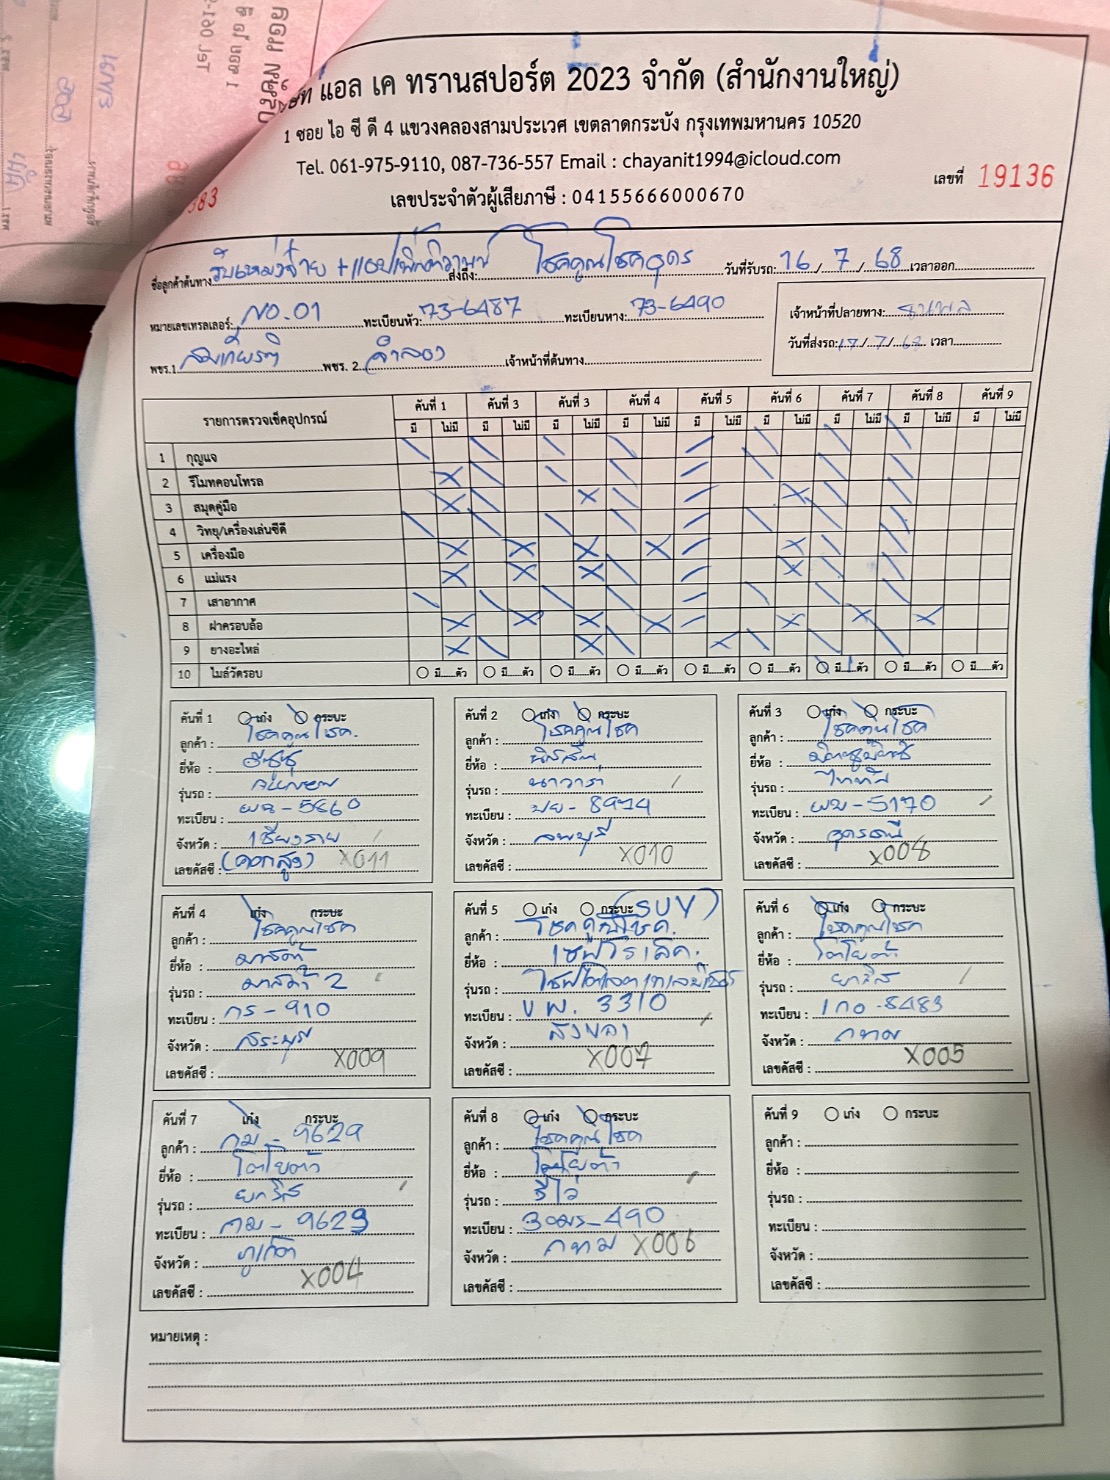 แอล เค ทรานสปอร์ต 2023 จำกัด (สำนักงานใหญ่)
1 ซอย ไอ ซี ดี 4 แขวงคลองสามประเวศ เขตลาดกระบัง กรุงเทพมหานคร 10520
Tel. 061-975-9110, 087-736-557 Email : chayanit1994@icloud.com
เลขที่ 19136
เลขประจำตัวผู้เสียภาษี : 04155666000670
ชื่อลูกค้าต้นทาง ส่งถึง: โชคคูณโชคอุดร วันที่รับรถ: 16/7/68 เวลาออก
หมายเลขเทรลเลอร์: NO.01 ทะเบียนหัว: 73-6487 ทะเบียนหาง: 73-6490
เจ้าหน้าที่ปลายทาง:
พขร.1 สมเกียรติ พขร. 2 จำลอง เจ้าหน้าที่ต้นทาง
วันที่ส่งรถ: 17/7/68 เวลา
รายการตรวจเช็คอุปกรณ์ คันที่ 1 คันที่ 3 คันที่ 3 คันที่ 4 คันที่ 5 คันที่ 6 คันที่ 7 คันที่ 8 คันที่ 9
มี ไม่มี มี ไม่มี มี ไม่มี มี ไม่มี มี ไม่มี มี ไม่มี มี ไม่มี มี ไม่มี มี ไม่มี
1 กุญแจ
2 รีโมทคอนโทรล
3 สมุดคู่มือ
4 วิทยุ/เครื่องเล่นซีดี
5 เครื่องมือ
6 แม่แรง
7 เสาอากาศ
8 ฝาครอบล้อ
9 ยางอะไหล่
10 ไมล์วัดรอบ มี ตัว มี ตัว มี ตัว มี ตัว มี ตัว มี ตัว มี 1 ตัว มี ตัว มี ตัว
คันที่ 1 เก๋ง กระบะ
ลูกค้า : โชคคูณโชค.
ยี่ห้อ : อีซูซุ
รุ่นรถ :
ทะเบียน : ผฉ-5860
จังหวัด : เชียงราย
เลขคัสซี : (คอกสูง) X011
คันที่ 2 เก๋ง กระบะ
ลูกค้า : โชคคูณโชค
ยี่ห้อ : นิสสัน
รุ่นรถ : นาวารา
ทะเบียน : บย-8974
จังหวัด : ลพบุรี
เลขคัสซี : X010
คันที่ 3 เก๋ง กระบะ
ลูกค้า : โชคคูณโชค
ยี่ห้อ : มิตซูบิชิ
รุ่นรถ : ไททัน
ทะเบียน : ผฉ-5170
จังหวัด : อุดรธานี
เลขคัสซี : X008
คันที่ 4 เก๋ง กระบะ
ลูกค้า : โชคคูณโชค
ยี่ห้อ : มาสด้า
รุ่นรถ : มาสด้า 2
ทะเบียน : กร-910
จังหวัด : สระบุรี
เลขคัสซี : X009
คันที่ 5 เก๋ง กระบะ (SUV)
ลูกค้า : โชคคูณโชค.
ยี่ห้อ : เชฟโรเลต.
รุ่นรถ :
ทะเบียน : ขพ. 3310
จังหวัด : สงขลา
เลขคัสซี : X007
คันที่ 6 เก๋ง กระบะ
ลูกค้า : โชคคูณโชค
ยี่ห้อ : โตโยต้า
รุ่นรถ : ยาริส
ทะเบียน : 1กอ-8483
จังหวัด : กทม
เลขคัสซี : X005
คันที่ 7 เก๋ง กระบะ
ลูกค้า : กม-9629
ยี่ห้อ : โตโยต้า
รุ่นรถ : ยาริส
ทะเบียน : กม-9629
จังหวัด : ภูเก็ต
เลขคัสซี : X004
คันที่ 8 เก๋ง กระบะ
ลูกค้า : โชคคูณโชค
ยี่ห้อ : โตโยต้า
รุ่นรถ : รีโว่
ทะเบียน : 3ฒร-490
จังหวัด : กทม X006
เลขคัสซี :
คันที่ 9 เก๋ง กระบะ
ลูกค้า :
ยี่ห้อ :
รุ่นรถ :
ทะเบียน :
จังหวัด :
เลขคัสซี :
หมายเหตุ :